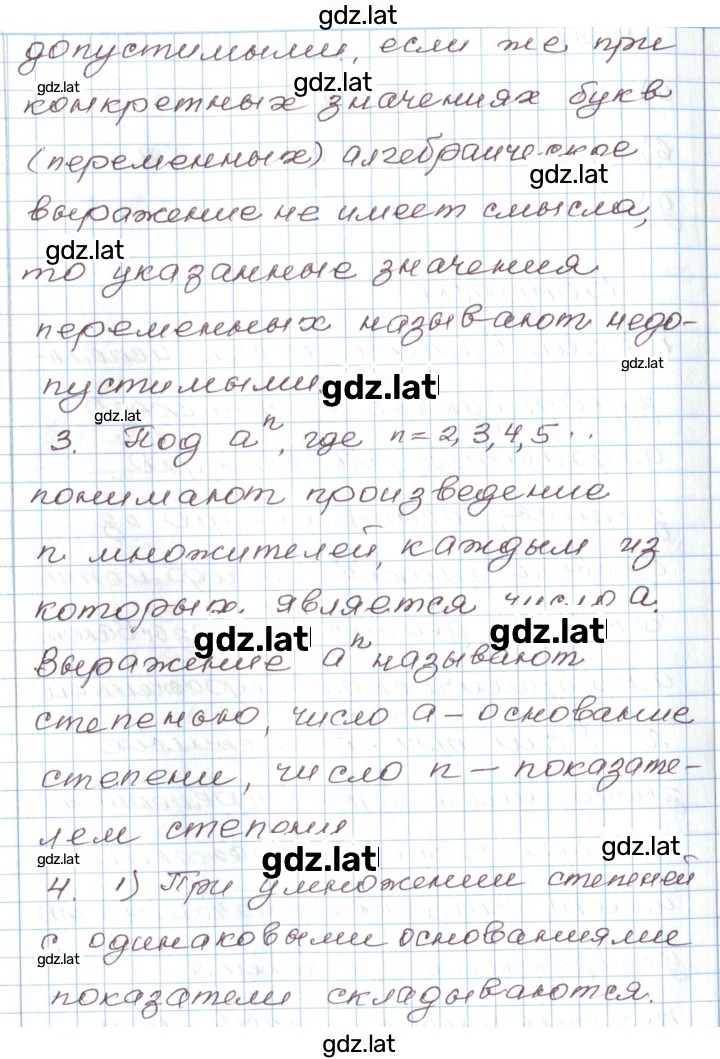 gdz.lat
допустимыми, если же при
gdz.lat gdz.lat
конкретных значениях букв
(переменных) алгебраическое
gdz.lat
выражение не имеет смысла,
gdz.lat
то указанные значения
переменных называют недо-
gdz.lat
пустимыми.
gdz.lat
gdz.lat
3. Под aⁿ, где n = 2, 3, 4, 5 ..
понимают произведение
n множителей, каждым из
которых является число a.
gdz.lat gdz.lat
Выражение aⁿ называют
степенью, число a – основание
степени, число n – показате-
лем степени
gdz.lat gdz.lat gdz.lat
4. 1) При умножении степеней
с одинаковыми основаниями
gdz.lat
показатели складываются.
gdz.lat